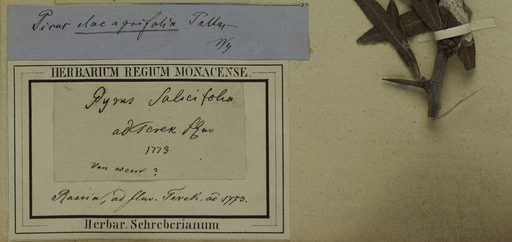 Pirus elaeagrifolia Pallas
HERBARIUM REGIUM MONACENSE.
Pyrus Salicifolia
ad Terek fluv
1773
Rossia, ad fluv. Terek. aō 1773.
Herbar. Schreberianum